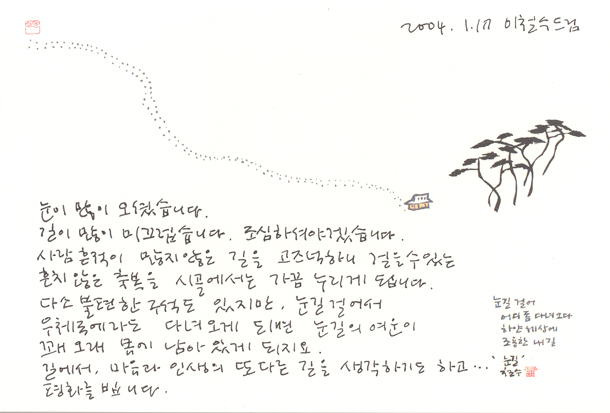 2004. 1.17 이철수드림
눈이 많이 오셨습니다.
길이 많이 미끄럽습니다. 조심하셔야겠습니다.
사람 흔적이 많지않은 길을 고즈넉하니 걸을수있는
흔치않은 축복을 시골에서는 가끔 누리게 됩니다.
다소 불편한 구석도 있지만, 눈길 걸어서
우체국에라도 다녀오게 되면 눈길의 여운이
꽤 오래 몸에 남아 있게 되지요.
길에서, 마음과 인생의 또다른 길을 생각하기도 하고...
평화를 빕니다.
눈길 걸어
어디쯤 다녀오다
하얀 세상에
조용한 내 길
'눈길'